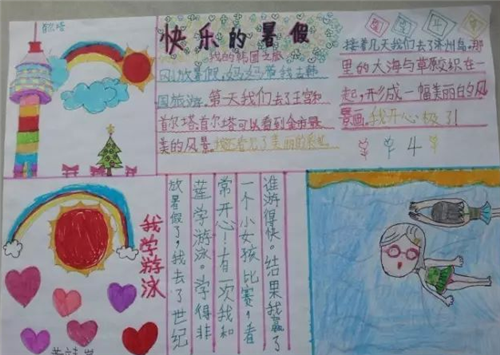 快乐的暑假
我的韩国之旅
一放暑假,妈妈带我去韩
国旅游。第天我们去了王宫和
首尔塔,首尔塔可以看到全市最
美的风景。
接着几天我们去了济州岛,那
里的大海与草原积在一
起,形成一幅美丽的风
景画。我开心极了!
我学游泳
放暑假了,我去了世纪
莲学游泳。学得非
常开心!有一次我和
一个小女孩比赛,看
谁游得快。结果我赢了